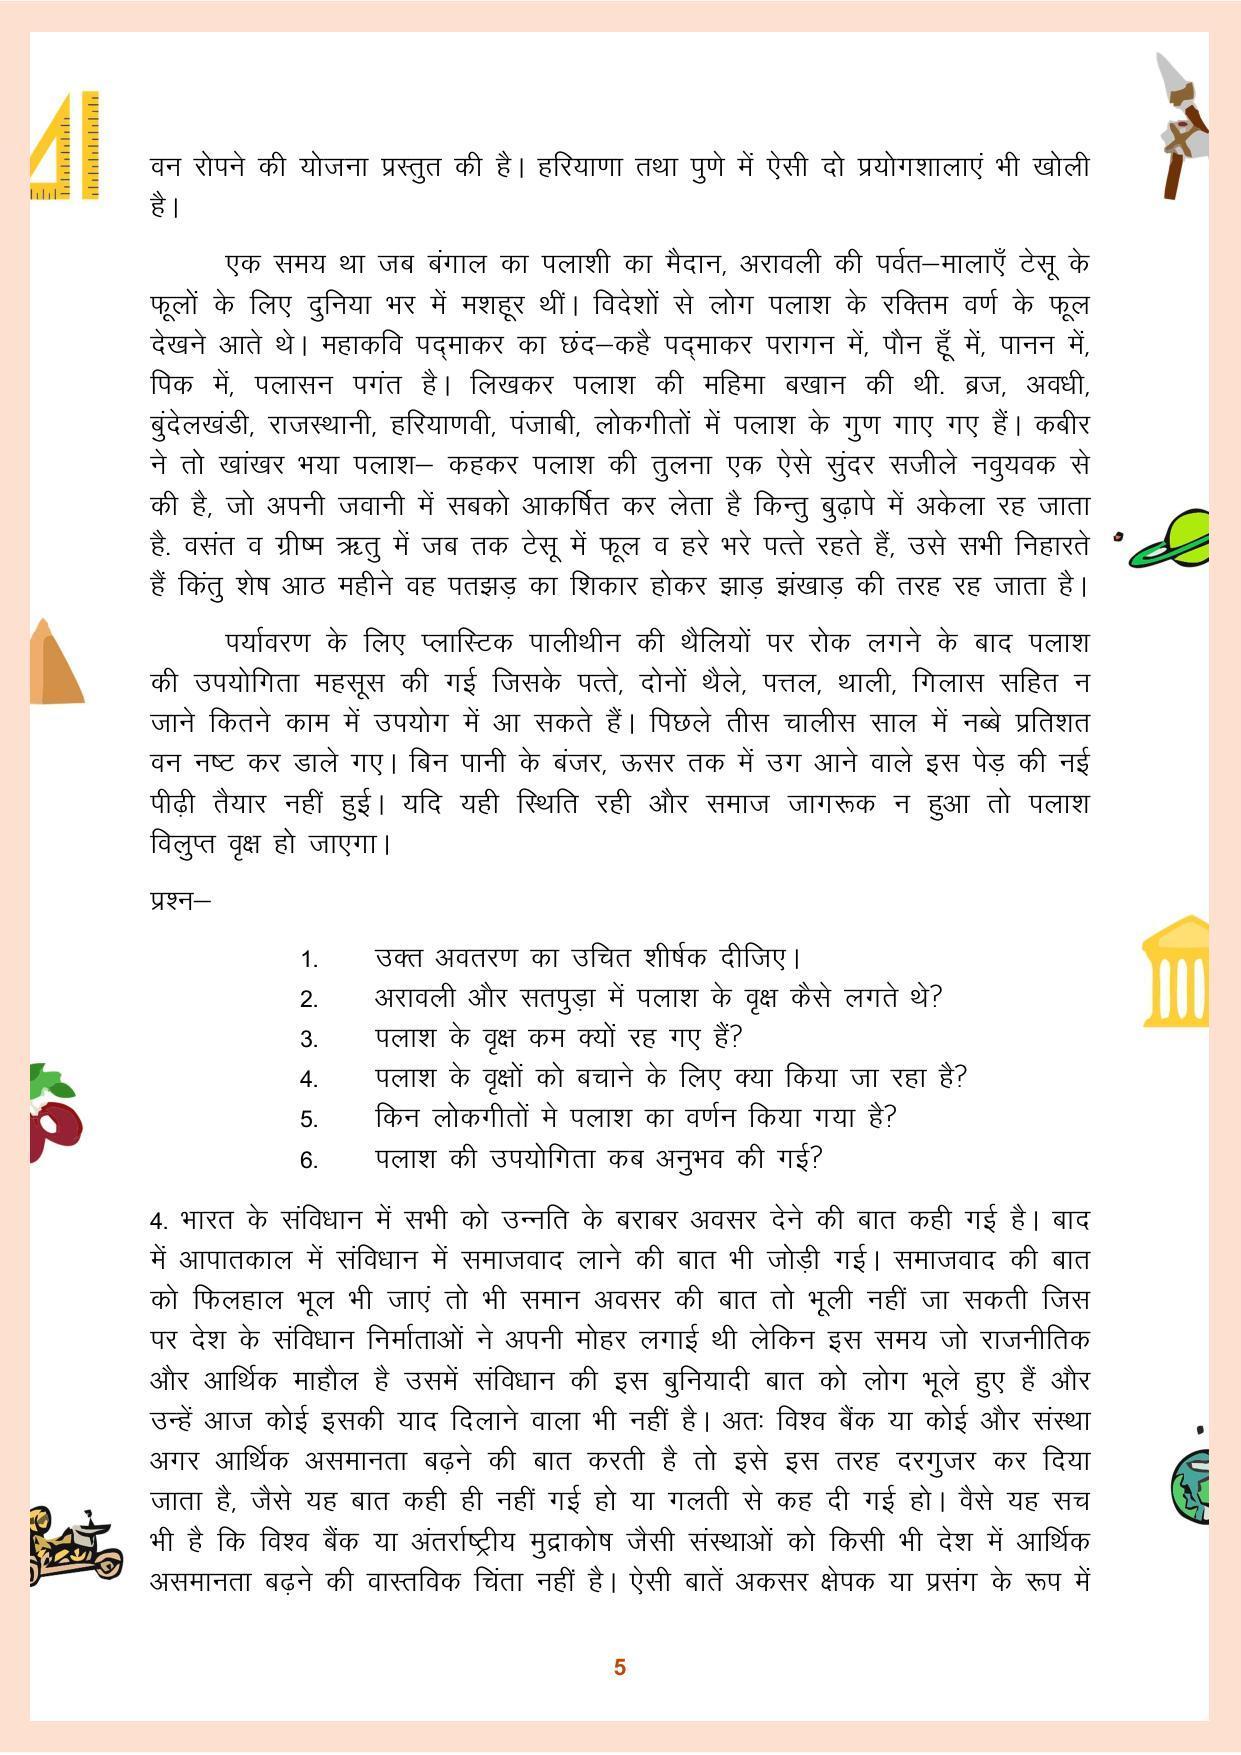 वन रोपने की योजना प्रस्तुत की है। हरियाणा तथा पुणे में ऐसी दो प्रयोगशालाएं भी खोली
है।
एक समय था जब बंगाल का पलाशी का मैदान, अरावली की पर्वत–मालाएँ टेसू के
फूलों के लिए दुनिया भर में मशहूर थीं। विदेशों से लोग पलाश के रक्तिम वर्ण के फूल
देखने आते थे। महाकवि पद्माकर का छंद–कहै पद्माकर परागन में, पौन हूँ में, पानन में,
पिक में, पलासन पगंत है। लिखकर पलाश की महिमा बखान की थी. ब्रज, अवधी,
बुंदेलखंडी, राजस्थानी, हरियाणवी, पंजाबी, लोकगीतों में पलाश के गुण गाए गए हैं। कबीर
ने तो खांखर भया पलाश– कहकर पलाश की तुलना एक ऐसे सुंदर सजीले नवुयवक से
की है, जो अपनी जवानी में सबको आकर्षित कर लेता है किन्तु बुढ़ापे में अकेला रह जाता
है. वसंत व ग्रीष्म ऋतु में जब तक टेसू में फूल व हरे भरे पत्ते रहते हैं, उसे सभी निहारते
हैं किंतु शेष आठ महीने वह पतझड़ का शिकार होकर झाड़ झंखाड़ की तरह रह जाता है।
पर्यावरण के लिए प्लास्टिक पालीथीन की थैलियों पर रोक लगने के बाद पलाश
की उपयोगिता महसूस की गई जिसके पत्ते, दोनों थैले, पत्तल, थाली, गिलास सहित न
जाने कितने काम में उपयोग में आ सकते हैं। पिछले तीस चालीस साल में नब्बे प्रतिशत
वन नष्ट कर डाले गए। बिन पानी के बंजर, ऊसर तक में उग आने वाले इस पेड़ की नई
पीढ़ी तैयार नहीं हुई। यदि यही स्थिति रही और समाज जागरूक न हुआ तो पलाश
विलुप्त वृक्ष हो जाएगा।
प्रश्न–
1. उक्त अवतरण का उचित शीर्षक दीजिए।
2. अरावली और सतपुड़ा में पलाश के वृक्ष कैसे लगते थे?
3. पलाश के वृक्ष कम क्यों रह गए हैं?
4. पलाश के वृक्षों को बचाने के लिए क्या किया जा रहा है?
5. किन लोकगीतों मे पलाश का वर्णन किया गया है?
6. पलाश की उपयोगिता कब अनुभव की गई?
4. भारत के संविधान में सभी को उन्नति के बराबर अवसर देने की बात कही गई है। बाद
में आपातकाल में संविधान में समाजवाद लाने की बात भी जोड़ी गई। समाजवाद की बात
को फिलहाल भूल भी जाएं तो भी समान अवसर की बात तो भूली नहीं जा सकती जिस
पर देश के संविधान निर्माताओं ने अपनी मोहर लगाई थी लेकिन इस समय जो राजनीतिक
और आर्थिक माहौल है उसमें संविधान की इस बुनियादी बात को लोग भूले हुए हैं और
उन्हें आज कोई इसकी याद दिलाने वाला भी नहीं है। अतः विश्व बैंक या कोई और संस्था
अगर आर्थिक असमानता बढ़ने की बात करती है तो इसे इस तरह दरगुजर कर दिया
जाता है, जैसे यह बात कही ही नहीं गई हो या गलती से कह दी गई हो। वैसे यह सच
भी है कि विश्व बैंक या अंतर्राष्ट्रीय मुद्राकोष जैसी संस्थाओं को किसी भी देश में आर्थिक
असमानता बढ़ने की वास्तविक चिंता नहीं है। ऐसी बातें अकसर क्षेपक या प्रसंग के रूप में
5